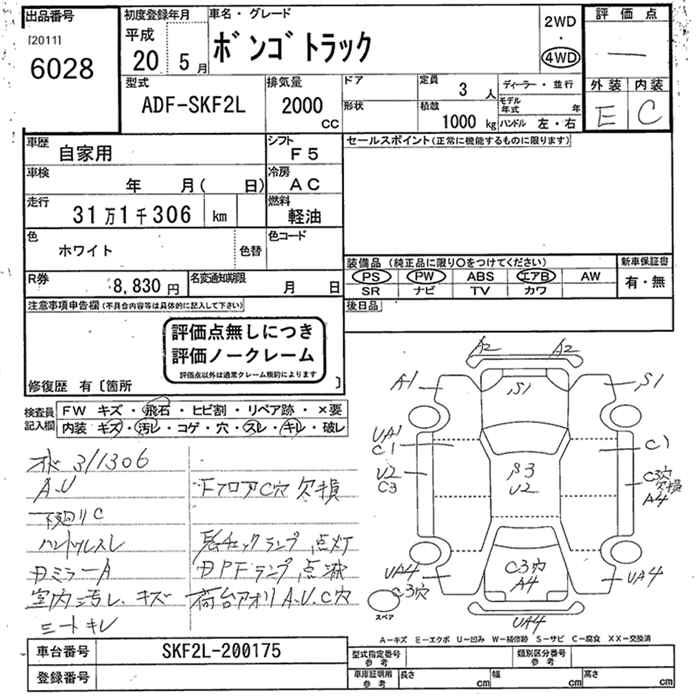 出品番号
[2011]
6028
初度登録年月
平成
20 5月
車名・グレード
ボンゴトラック
2WD
・
4WD
評価点
―
外装 内装
E C
型式
ADF-SKF2L
排気量
2000
cc
ドア
形状
定員
3 人
積載
1000 kg
ディーラー・並行
モデル年式 年
ハンドル 左・右
車歴
自家用
シフト
F5
車検
年 月( 日)
冷房
AC
走行
31万1千306 km
燃料
軽油
色
ホワイト
色替
色コード
R券
8,830円
名変通知期限
月 日
セールスポイント(正常に機能するものに限ります)
装備品 (純正品に限り○をつけてください)
PS PW ABS エアB AW
SR ナビ TV カワ
新車保証書
有・無
後日品
注意事項申告欄(不具合内容等は具体的に記入して下さい)
評価点無しにつき
評価ノークレーム
評価点以外は通常クレーム規約によります
修復歴 有〔箇所 〕
検査員
記入欄
FW キズ・飛石・ヒビ割・リペア跡・×要
内装 キズ・汚レ・コゲ・穴・スレ・キレ・破レ
311306
A.U
下廻りC
ハンドルスレ
ミラーA
室内汚レ、キズ
シートキレ
FフロアC穴 欠損
チェックランプ 点灯
DPFランプ 点滅
荷台アオリA.U.C穴
A2 A2
A1 S1 S1
UA1
C1 C1
U2
C3
β3
U2
C3穴
欠損
A4
UA4
C3穴
C3穴
A4
UA4
UA4
スペア
A―キズ E―エクボ U―凹み W―補修跡 S―サビ C―腐食 XX―交換済
車台番号
SKF2L-200175
登録番号
型式指定番号
参考
類別区分番号
参考
車庫証明用
参考
長さ cm
幅 cm
高さ cm